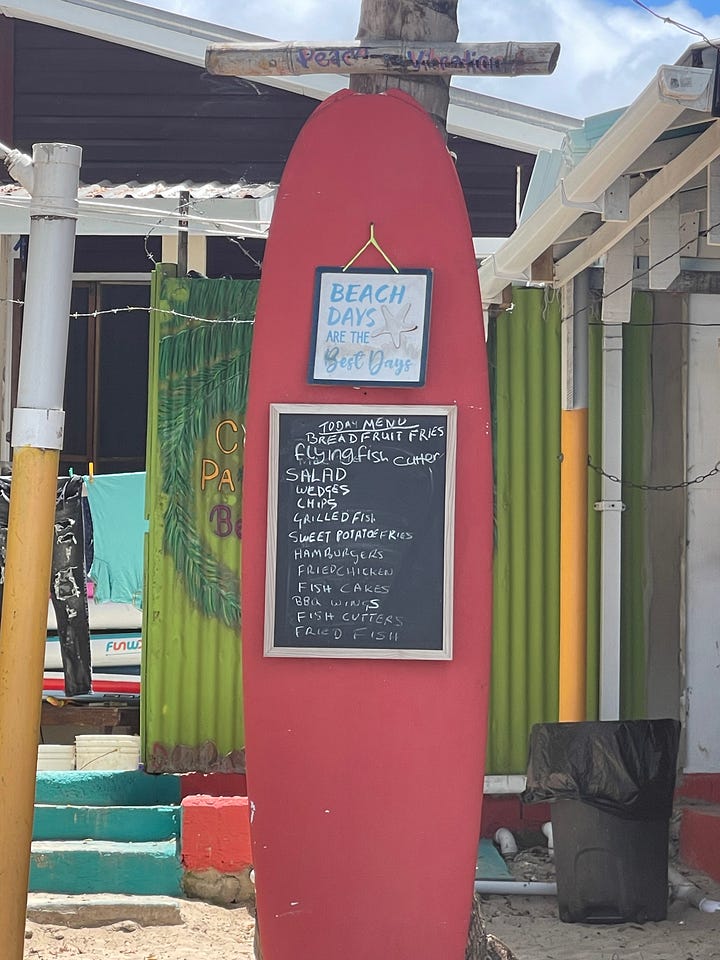 Peach Vibration
BEACH
DAYS
ARE THE
Best Days
TODAY MENU
BREADFRUIT FRIES
flyingfish cutter
SALAD
WEDGES
CHIPS
GRILLED FISH
SWEET POTATOE FRIES
HAMBURGERS
FRIED CHICKEN
FISH CAKES
BBQ WINGS
FISH CUTTERS
FRIED FISH
PA
Be